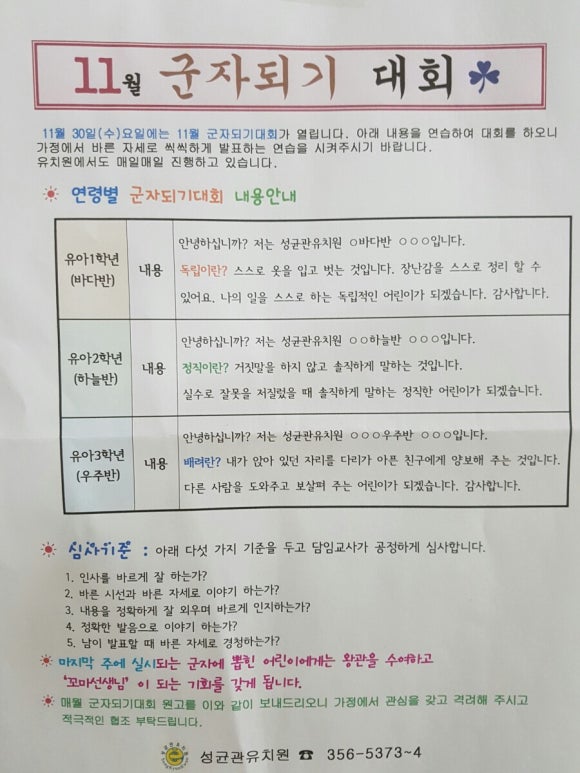 11월 군자되기 대회
11월 30일(수)요일에는 11월 군자되기대회가 열립니다. 아래 내용을 연습하여 대회를 하오니
가정에서 바른 자세로 씩씩하게 발표하는 연습을 시켜주시기 바랍니다.
유치원에서도 매일매일 진행하고 있습니다.
연령별 군자되기대회 내용안내
유아1학년
(바다반)
내용
안녕하십니까? 저는 성균관유치원 ㅇ바다반 ㅇㅇㅇ입니다.
독립이란? 스스로 옷을 입고 벗는 것입니다. 장난감을 스스로 정리 할 수
있어요. 나의 일을 스스로 하는 독립적인 어린이가 되겠습니다. 감사합니다.
유아2학년
(하늘반)
내용
안녕하십니까? 저는 성균관유치원 ㅇㅇ하늘반 ㅇㅇㅇ입니다.
정직이란? 거짓말을 하지 않고 솔직하게 말하는 것입니다.
실수로 잘못을 저질렀을 때 솔직하게 말하는 정직한 어린이가 되겠습니다.
유아3학년
(우주반)
내용
안녕하십니까? 저는 성균관유치원 ㅇㅇㅇ우주반 ㅇㅇㅇ입니다.
배려란? 내가 앉아 있던 자리를 다리가 아픈 친구에게 양보해 주는 것입니다.
다른 사람을 도와주고 보살펴 주는 어린이가 되겠습니다. 감사합니다.
심사기준 : 아래 다섯 가지 기준을 두고 담임교사가 공정하게 심사합니다.
1. 인사를 바르게 잘 하는가?
2. 바른 시선과 바른 자세로 이야기 하는가?
3. 내용을 정확하게 잘 외우며 바르게 인지하는가?
4. 정확한 발음으로 이야기 하는가?
5. 남이 발표할 때 바른 자세로 경청하는가?
마지막 주에 실시되는 군자에 뽑힌 어린이에게는 왕관을 수여하고
'꼬마선생님' 이 되는 기회를 갖게 됩니다.
매월 군자되기대회 원고를 이와 같이 보내드리오니 가정에서 관심을 갖고 격려해 주시고
적극적인 협조 부탁드립니다.
성균관유치원 ☎ 356-5373~4